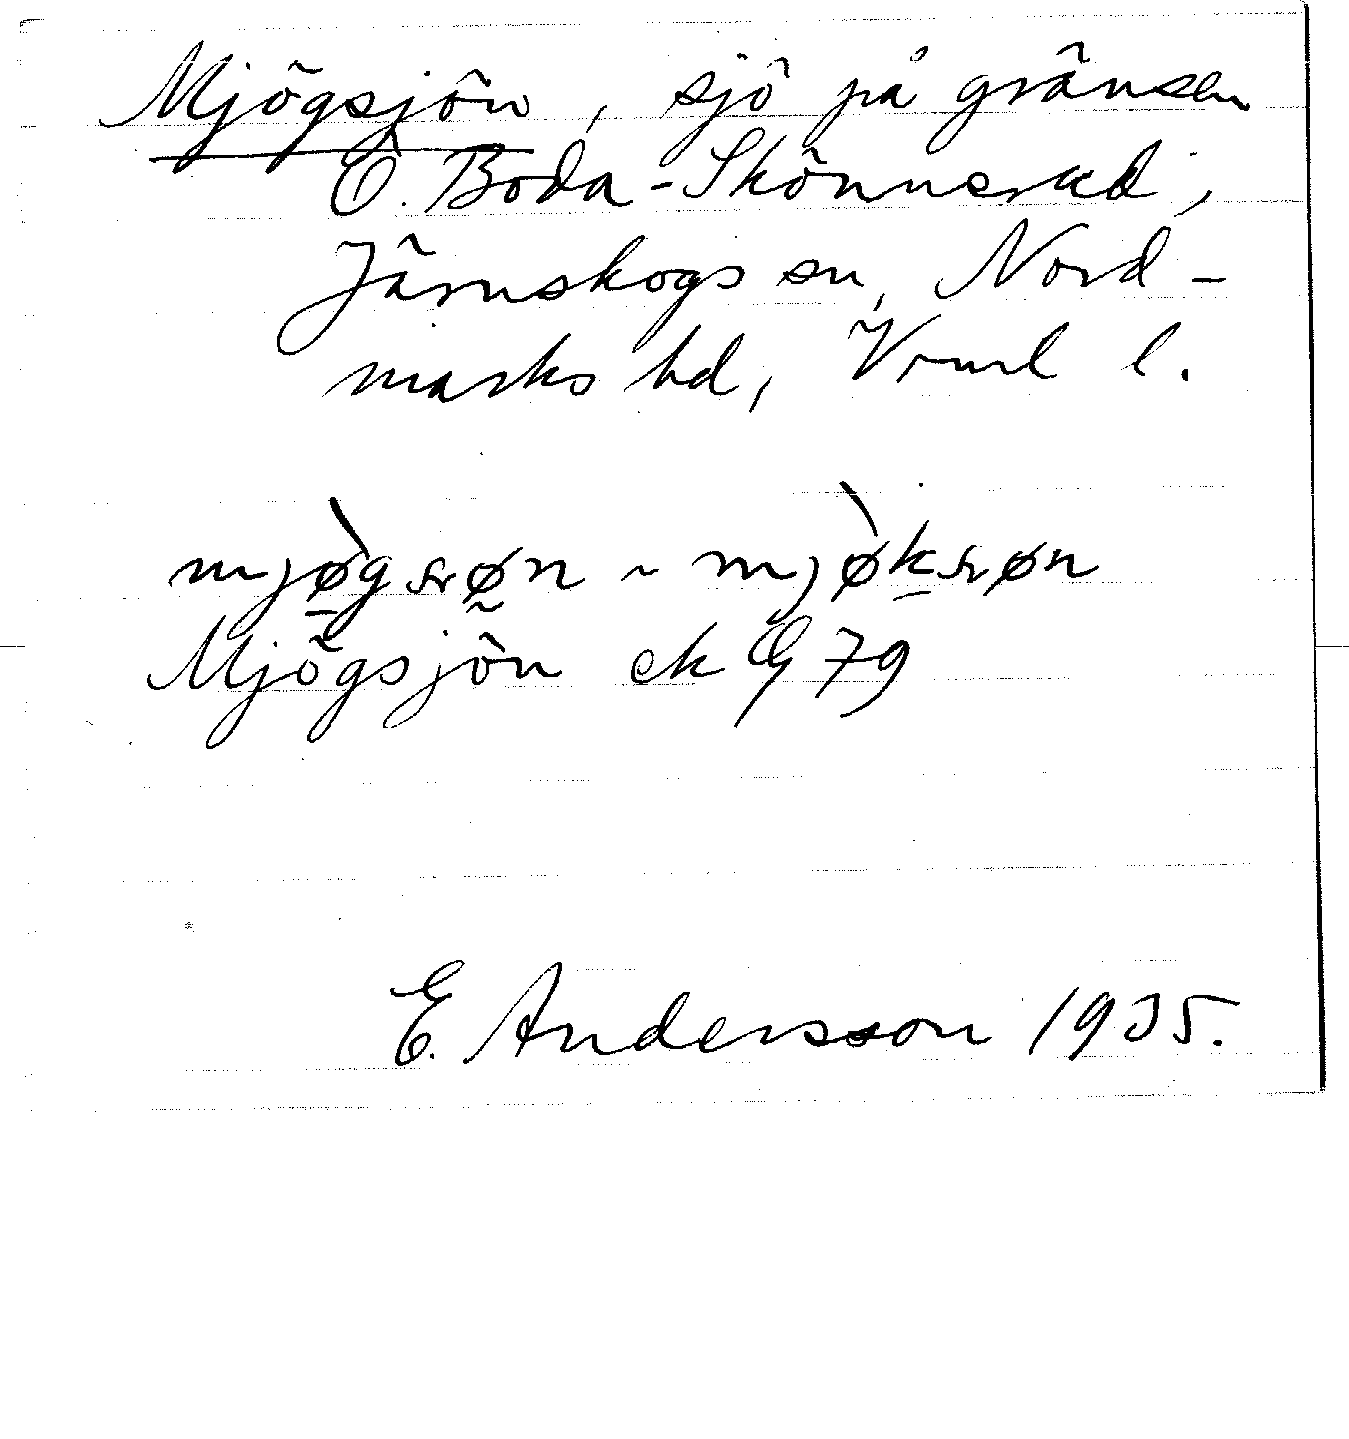 Mjögsjön, sjö på gränsen
Ö. Boda-Skönnerud,
Järnskogs sn, Nord-
marks hd, Vrml l.
mjø̀gsøn ~ mjø̀ksøn
Mjögsjön ek G 79
E. Andersson 1935.